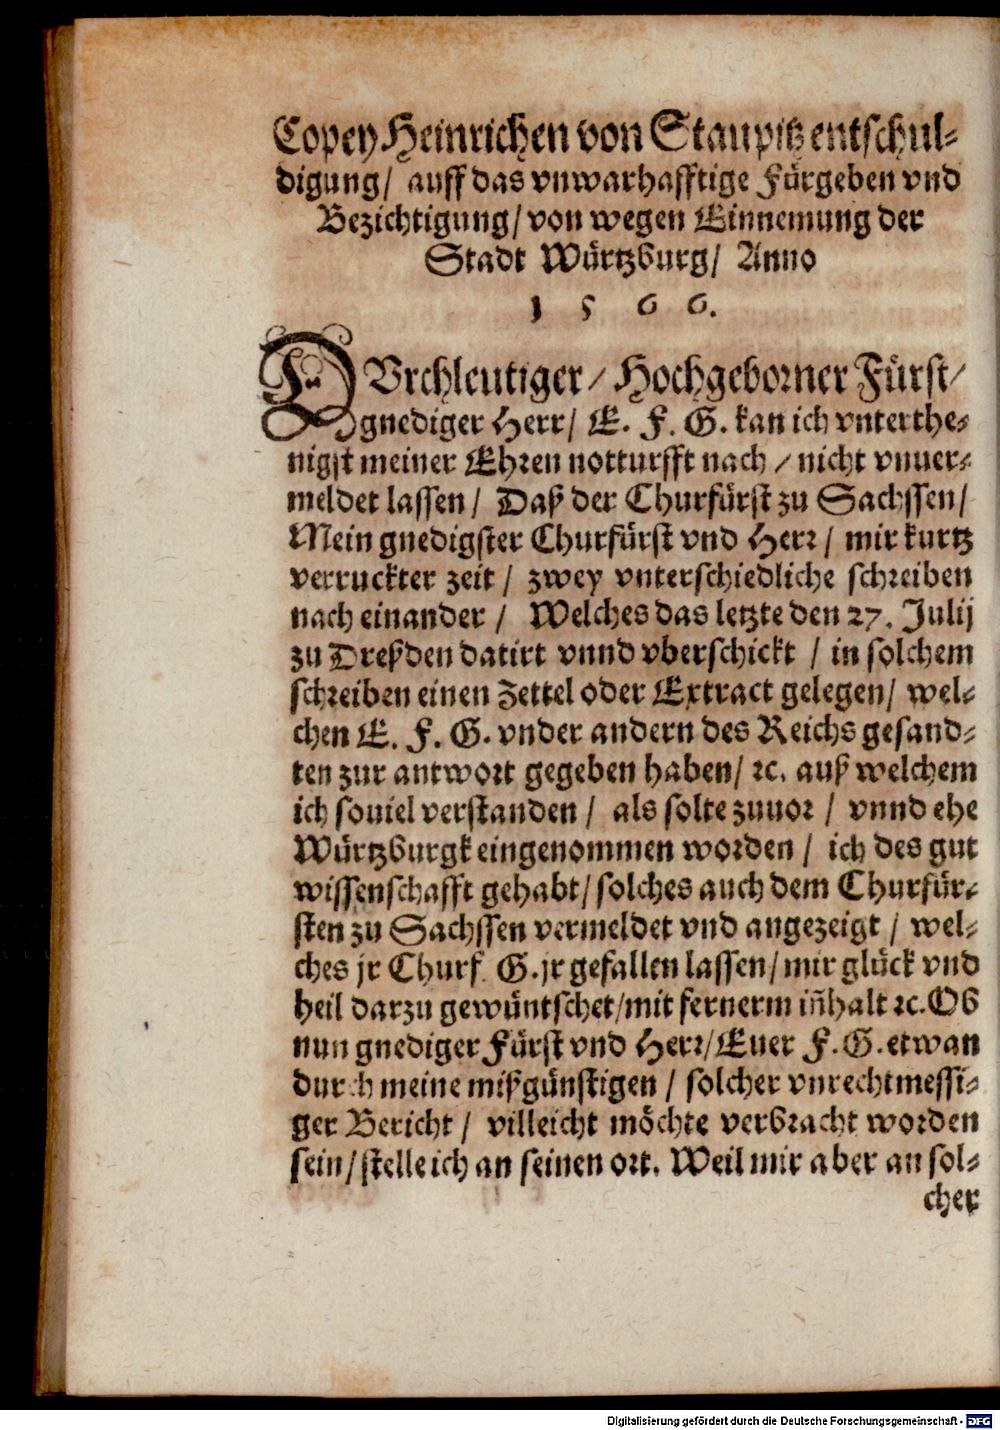 Copey Heinrichen von Staupitz entschul-
digung/ auff das vnwarhafftige Fürgeben vnd
Bezichtigung/ von wegen Einnemung der
Stadt Würtzburg/ Anno
1566.
DVrchleutiger/ Hochgeborner Fürst/
gnediger Herr/ E. F. G. kan ich vnterthe-
nigst meiner Ehren notturfft nach/ nicht vnuer-
meldet lassen/ Daß der Churfürst zu Sachssen/
Mein gnedigster Churfürst vnd Herr/ mir kurtz
verruckter zeit/ zwey vnterschiedliche schreiben
nach einander/ Welches das letzte den 27. Julij
zu Dreßden datirt vnnd vberschickt/ in solchem
schreiben einen Zettel oder Extract gelegen/ wel-
chen E. F. G. vnder andern des Reichs gesand-
ten zur antwort gegeben haben/ ꝛc. auß welchem
ich souiel verstanden/ als solte zuuor/ vnnd ehe
Würtzburgk eingenommen worden/ ich des gut
wissenschafft gehabt/ solches auch dem Churfür-
sten zu Sachssen vermeldet vnd angezeigt/ wel-
ches jr Churf. G. jr gefallen lassen/ mir glück vnd
heil darzu gewüntschet/ mit fernerm iñhalt ꝛc. Ob
nun gnediger Fürst vnd Herr/ Euer F. G. etwan
durch meine mißgünstigen/ solcher vnrechtmessi-
ger Bericht/ villeicht möchte verbracht worden
sein/ stelle ich an seinen ort. Weil mir aber an sol-
cher
Digitalisierung gefördert durch die Deutsche Forschungsgemeinschaft - DFG